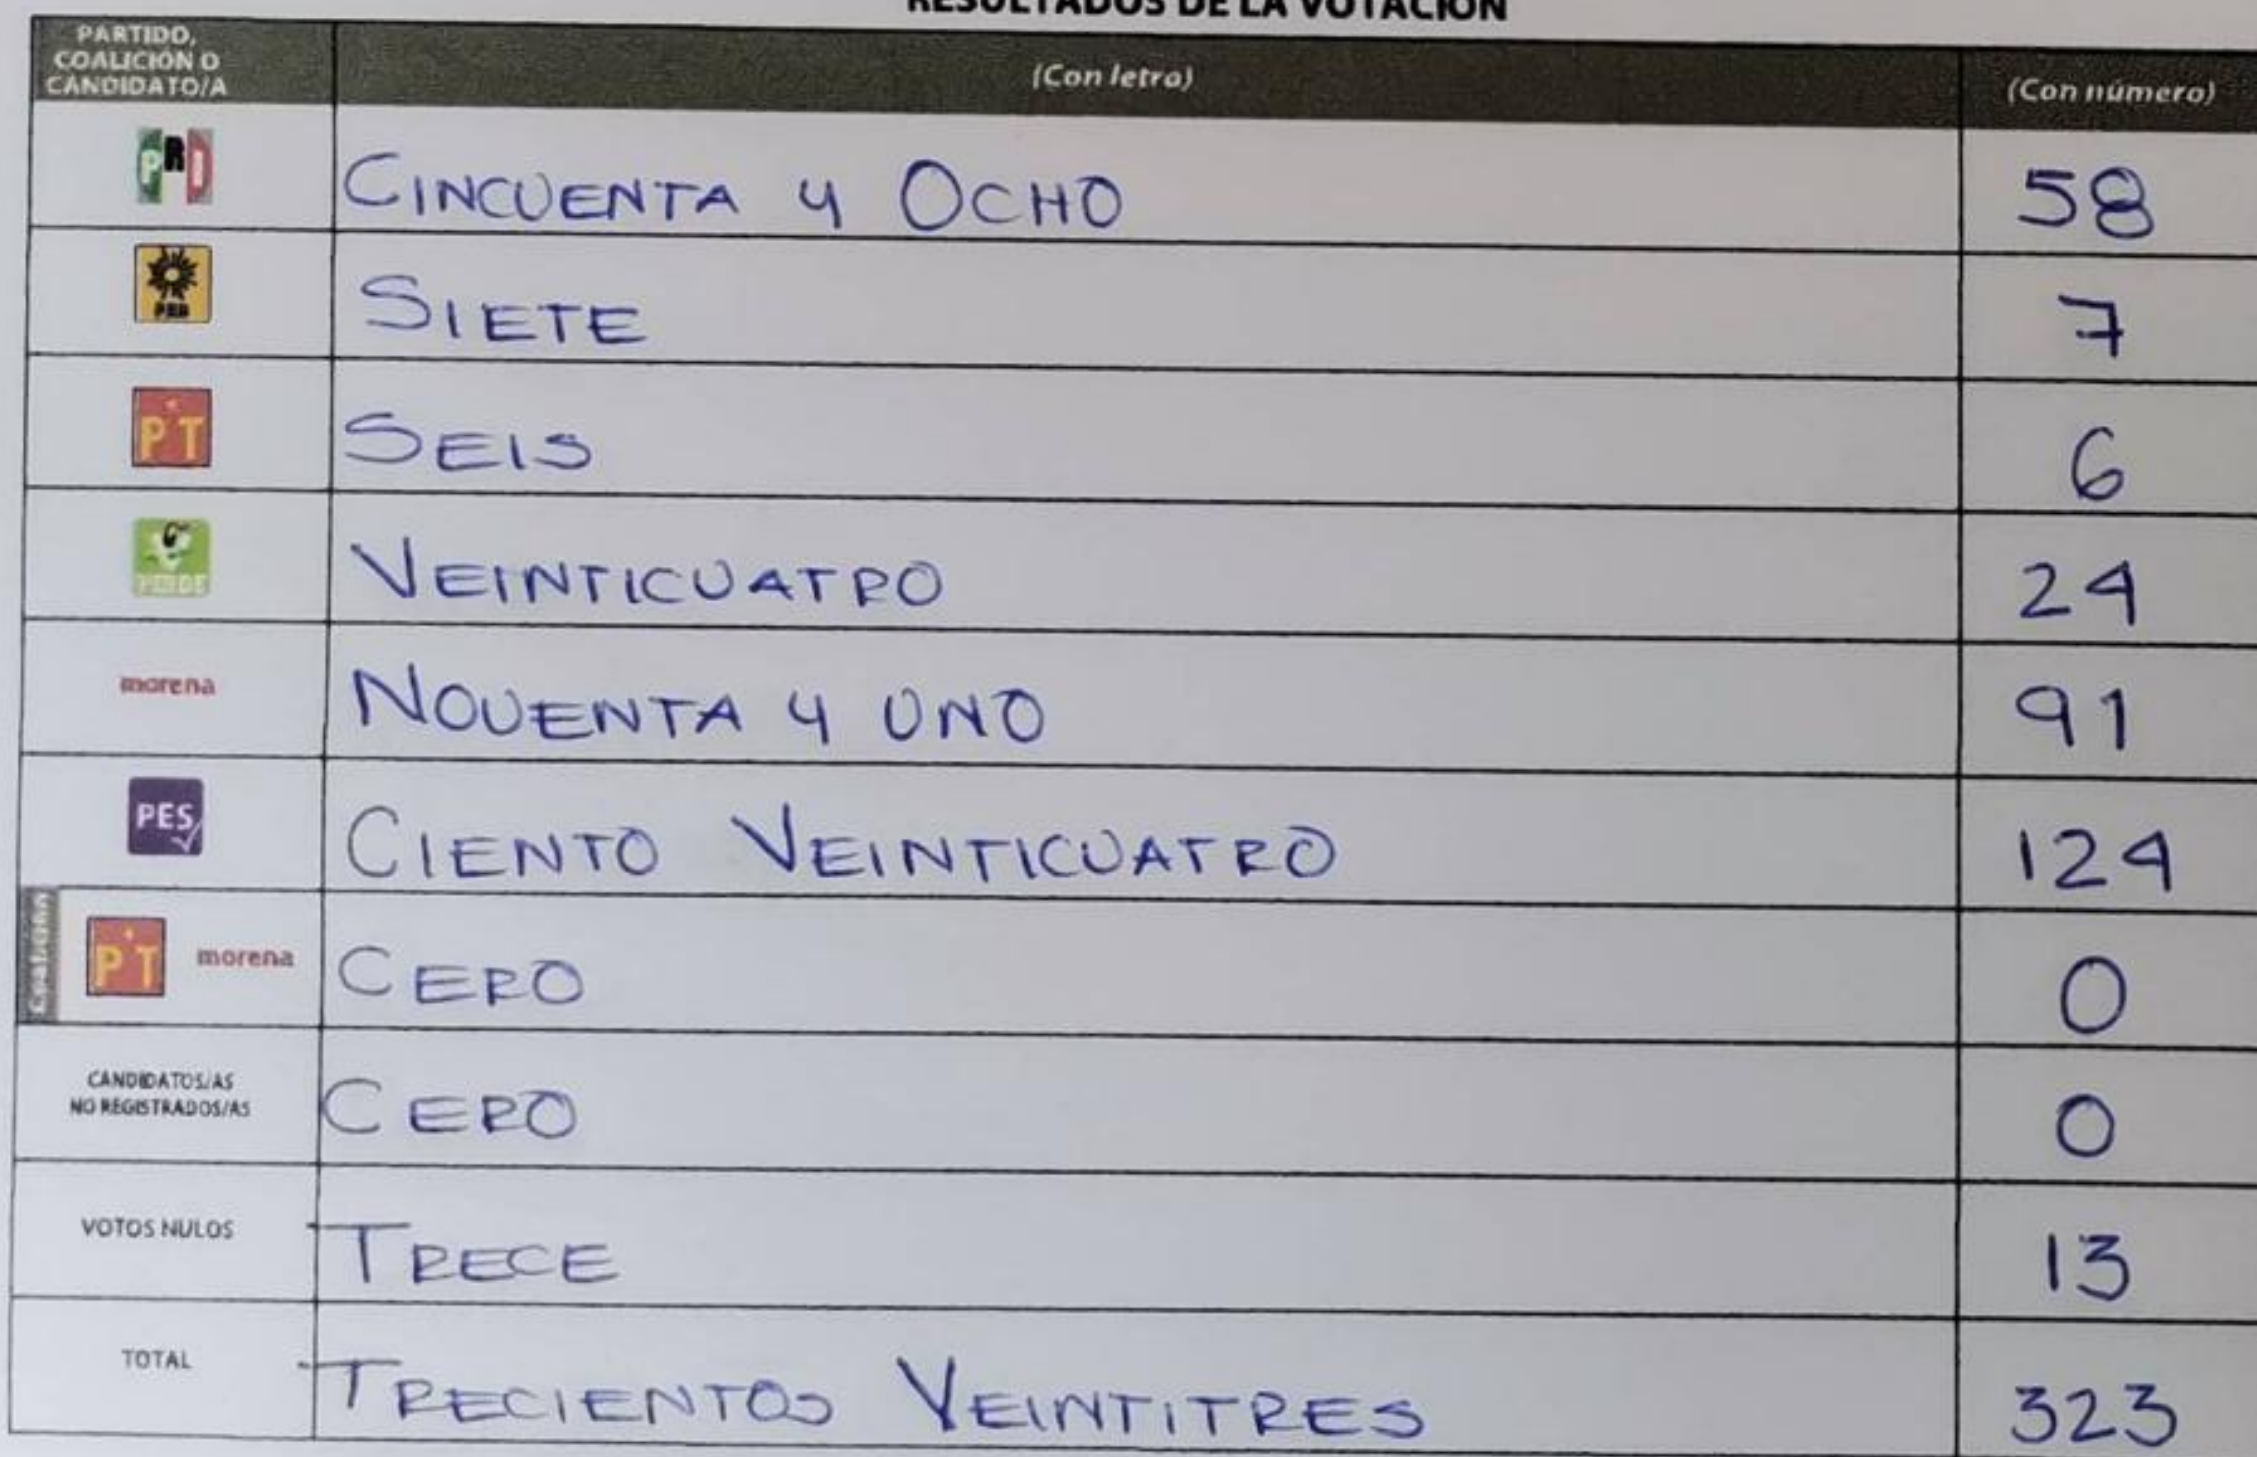 RESULTADOS DE LA VOTACIÓN
PARTIDO,
COALICIÓN O
CANDIDATO/A
(Con letra)
(Con número)
PRI
CINCUENTA Y OCHO
58
PRD
SIETE
7
PT
SEIS
6
VERDE
VEINTICUATRO
24
morena
NOVENTA Y UNO
91
PES
CIENTO VEINTICUATRO
124
Coalición
PT morena
CERO
0
CANDIDATOS/AS
NO REGISTRADOS/AS
CERO
0
VOTOS NULOS
TRECE
13
TOTAL
TRECIENTOS VEINTITRES
323